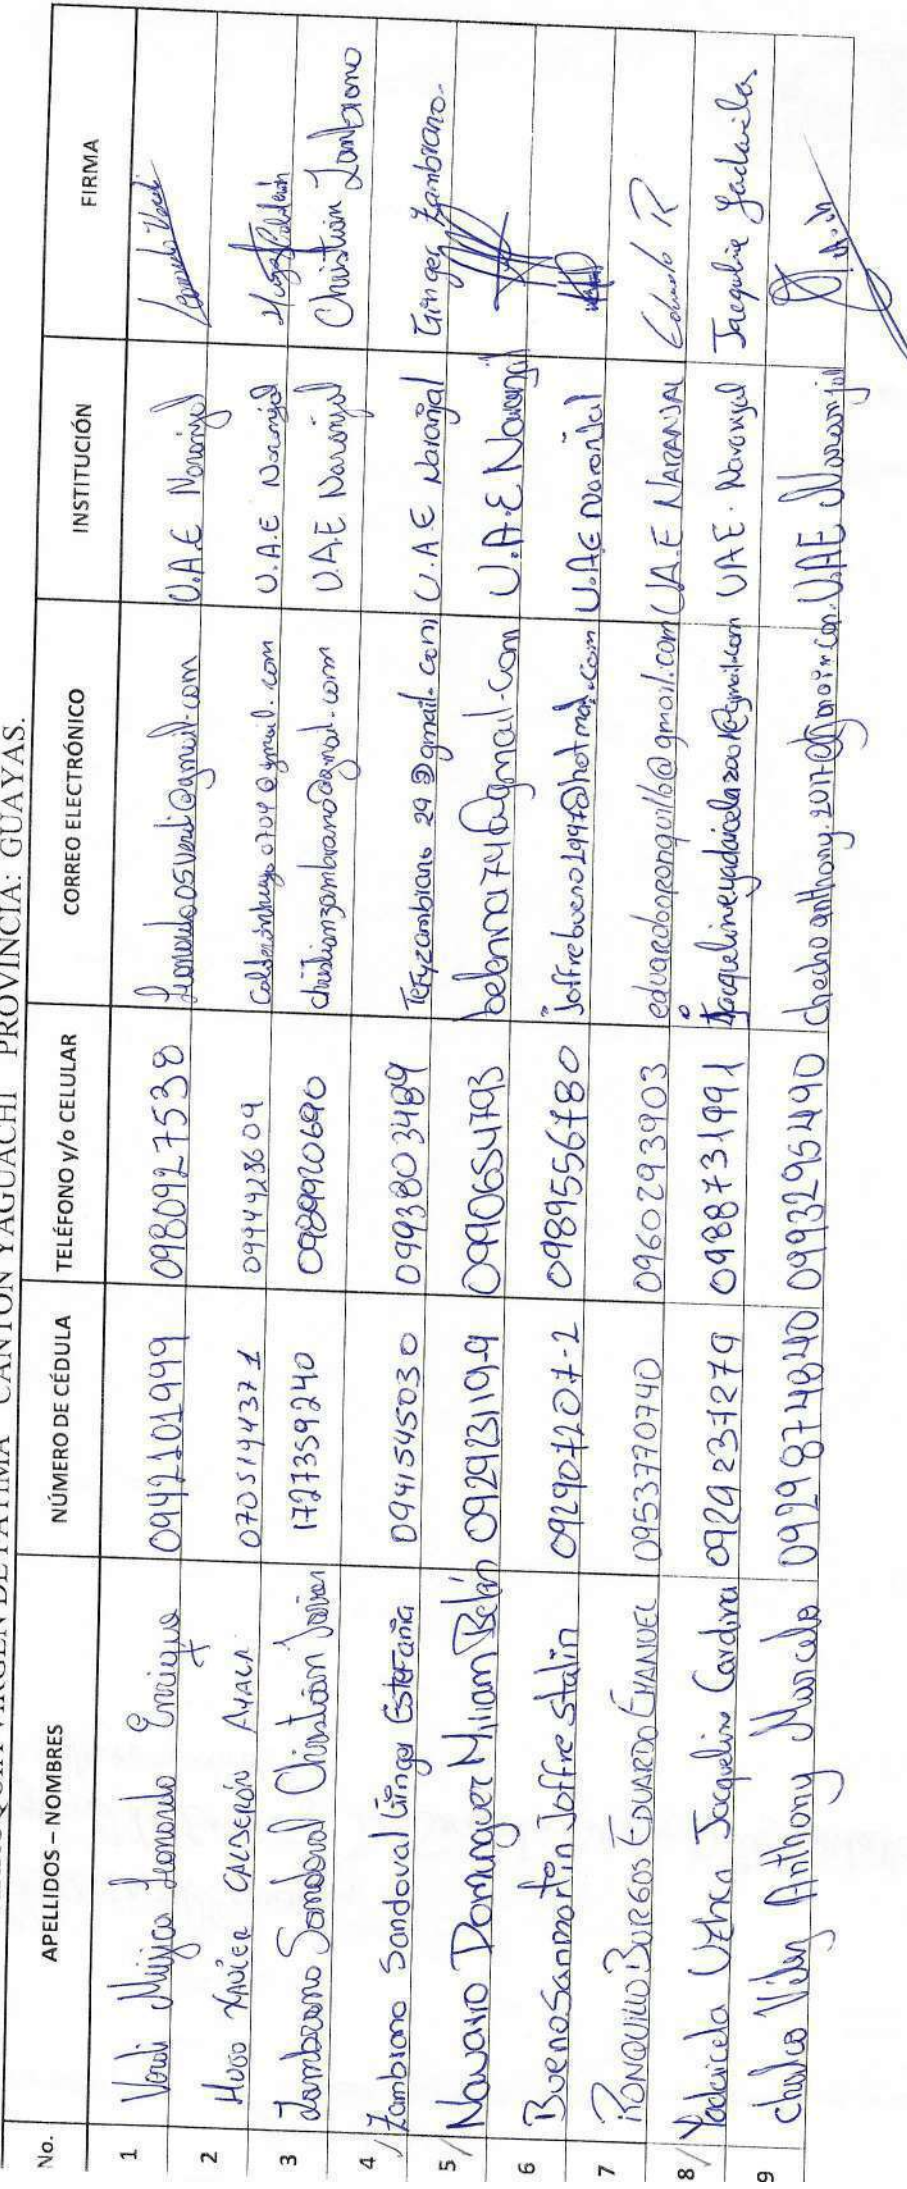 PARROQUIA VIRGEN DE FÁTIMA CANTÓN YAGUACHI PROVINCIA: GUAYAS.
No. APELLIDOS – NOMBRES NÚMERO DE CÉDULA TELÉFONO y/o CELULAR CORREO ELECTRÓNICO INSTITUCIÓN FIRMA
1 Verdi Mujica Leonardo Enrique 0942101999 0980927538 U.A.E Naranjal
2 Hugo Xavier CALDERÓN AYALA 0705194371 0994928609 calderonhugo0704@gmail.com U.A.E Naranjal Hugo Calderón
3 Zambrano Sandoval Christian Javier 1727359240 0989920690 christianzambrano@gmail.com U.A.E Naranjal Christian Zambrano
4 Zambrano Sandoval Ginger Estefania 0941545030 0993803489 Tefyzambrano29@gmail.com U.A.E Naranjal Ginger Zambrano.
5 Navarro Dominguez Miriam Belén 092923119-9 0990654793 belenna74@gmail.com U.A.E Naranjal
6 Bueno Sanmartin Joffre Stalin 092907207-2 0989556780 joffrebueno1997@hotmail.com U.A.E Naranjal
7 RONQUILLO BURGOS EDUARDO EMANUEL 0953770740 0960293903 eduardoronquillo@gmail.com U.A.E NARANJAL Eduardo R
8 Yadaicela Uzhca Jacqueline Cardina 0929237279 0988731991 UAE. Naranjal Jacqueline Yadaicela.
9 Chalco Vélez Anthony Marcelo 0929874840 0993295490 U.A.E Naranjal